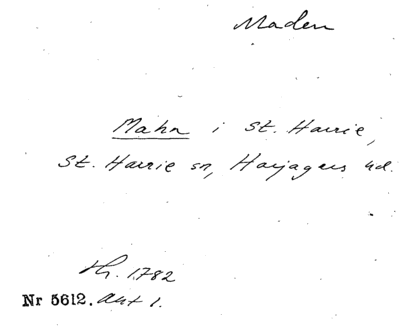 Maden
Mahn i St. Harrie,
St. Harrie sn, Harjagers hd.
th. 1782
Nr 5612. akt 1.